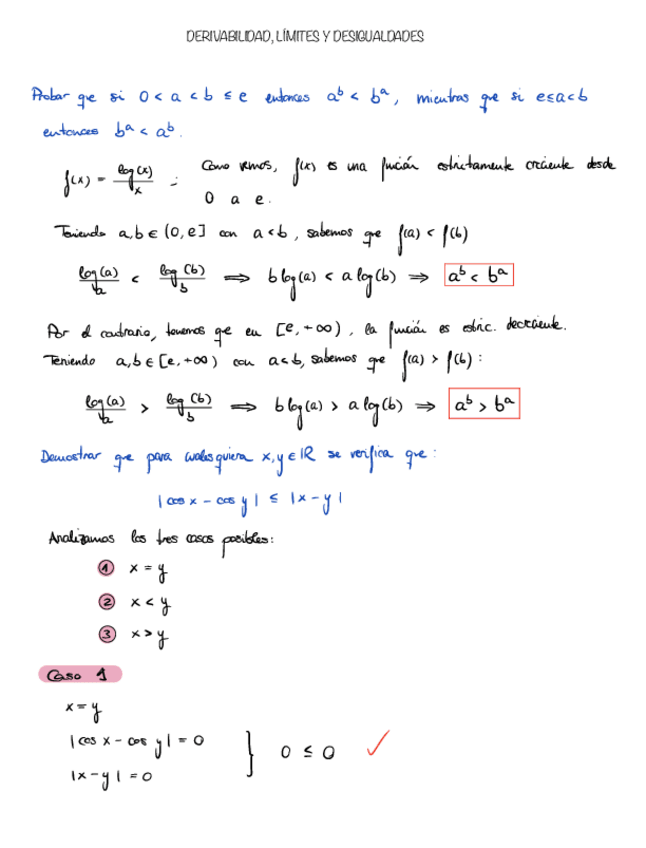 DERIVABILIDAD, LÍMITES Y DESIGUALDADES
Probar que si 0 < a < b ≤ e entonces a^b < b^a, mientras que si e ≤ a < b
entonces b^a < a^b.
f(x) = log(x)/x ; Como vemos, f(x) es una función estrictamente creciente desde
0 a e.
Teniendo a,b ∈ (0,e] con a<b, sabemos que f(a) < f(b)
log(a)/a < log(b)/b ⟹ b log(a) < a log(b) ⟹ a^b < b^a
Por el contrario, tenemos que en [e,+∞), la función es estric. decreciente.
Teniendo a,b ∈ [e,+∞) con a<b, sabemos que f(a) > f(b):
log(a)/a > log(b)/b ⟹ b log(a) > a log(b) ⟹ a^b > b^a
Demostrar que para cualesquiera x,y ∈ ℝ se verifica que:
|cos x - cos y| ≤ |x - y|
Analizamos los tres casos posibles:
① x = y
② x < y
③ x > y
Caso 1
x = y
|cos x - cos y| = 0
|x - y| = 0
} 0 ≤ 0 ✓